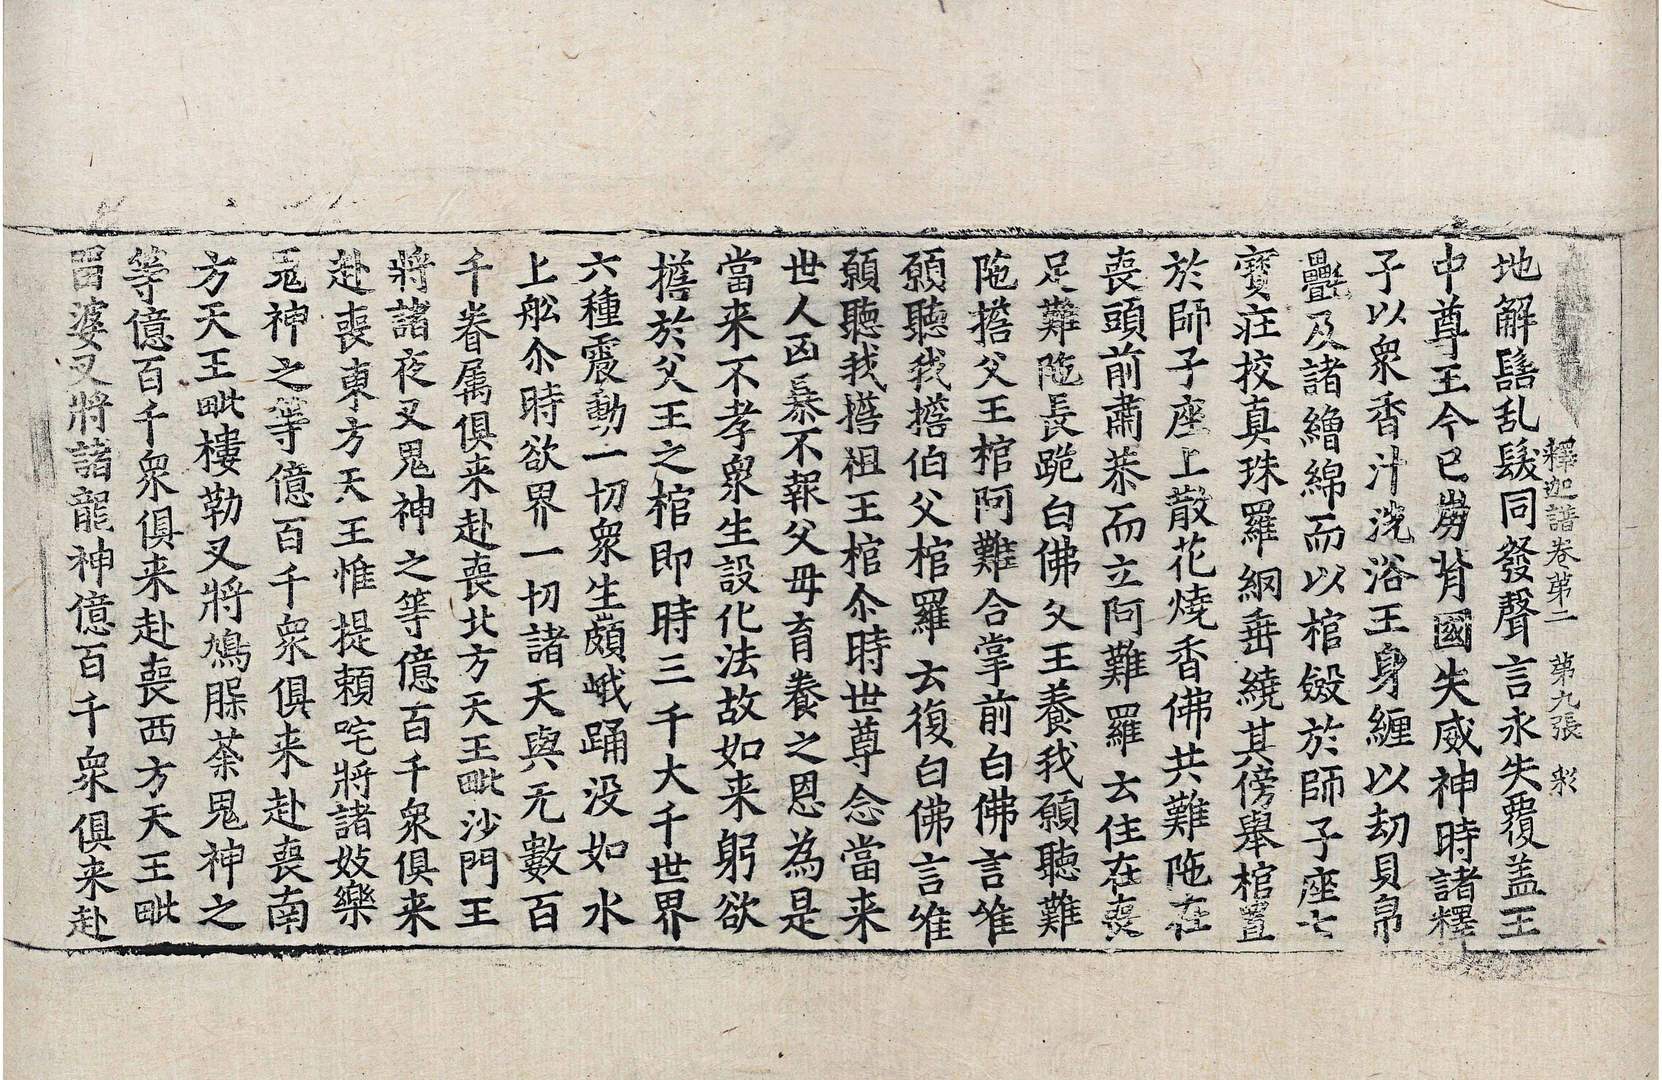 釋迦譜卷第二　第九張　彩
地解髻乱髮同發聲言永失覆盖王
中尊王今已崩背國失威神時諸釋
子以衆香汁洗浴王身纏以劫貝帛
㲲及諸繒綿而以棺斂於師子座七
寶莊校真珠羅網垂繞其傍舉棺置
於師子座上散花燒香佛共難陁在
喪頭前肅恭而立阿難羅云住在喪
足難陁長跪白佛父王養我願聽難
陁擔父王棺阿難合掌前白佛言唯
願聽我擔伯父棺羅云復白佛言唯
願聽我擔祖王棺尒時世尊念當来
世人凶暴不報父母育養之恩為是
當来不孝衆生設化法故如来躬欲
擔於父王之棺即時三千大千世界
六種震動一切衆生䫜峨踊没如水
上舩尒時欲界一切諸天與无數百
千眷属俱来赴喪北方天王毗沙門王
將諸夜叉鬼神之等億百千衆俱来
赴喪東方天王惟提賴吒將諸妓樂
鬼神之等億百千衆俱来赴喪南
方天王毗樓勒叉將鳩脲荼鬼神之
等億百千衆俱来赴喪西方天王毗
留婆叉將諸龍神億百千衆俱来赴